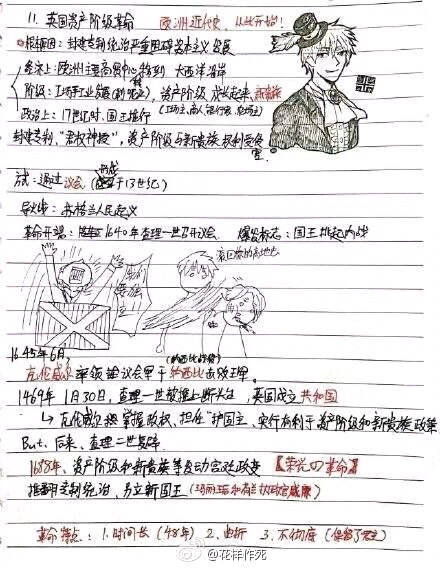 11. 英国资产阶级革命 欧洲近代史，从此开始！
根源因：封建专制统治严重阻碍资本主义发展
经济上：欧洲主要商贸中心转到大西洋沿岸
阶级：工场手工业发展，资产阶级成长起来，新贵族
政治上：17世纪时，国王推行（工场主、商人、银行家、农场主）
封建专制，"君权神授"，资产阶级与新贵族权利受侵害
形成
方式：通过议会（于13世纪）
导火线：苏格兰人民起义
革命开端：1640年查理一世召开议会 爆发标志：国王挑起内战
滚回你的高地去
我们要独立
1645年6月，
克伦威尔率领议会军于纳西比击败王军
（纳西比战役）
1469年1月30日，查理一世被推上断头台，英国成立共和国
↳ 克伦威尔掌握政权，担任"护国主"，实行有利于资产阶级和新贵族政策
But，后来，查理二世复辟
1688年，资产阶级和新贵族等发动宫廷政变【荣光四革命】
推翻专制统治，另立新国王（玛丽和荷兰执政官威廉）
革命特点：1.时间长（48年） 2.曲折 3.不彻底（保留了君主）
@花样作死